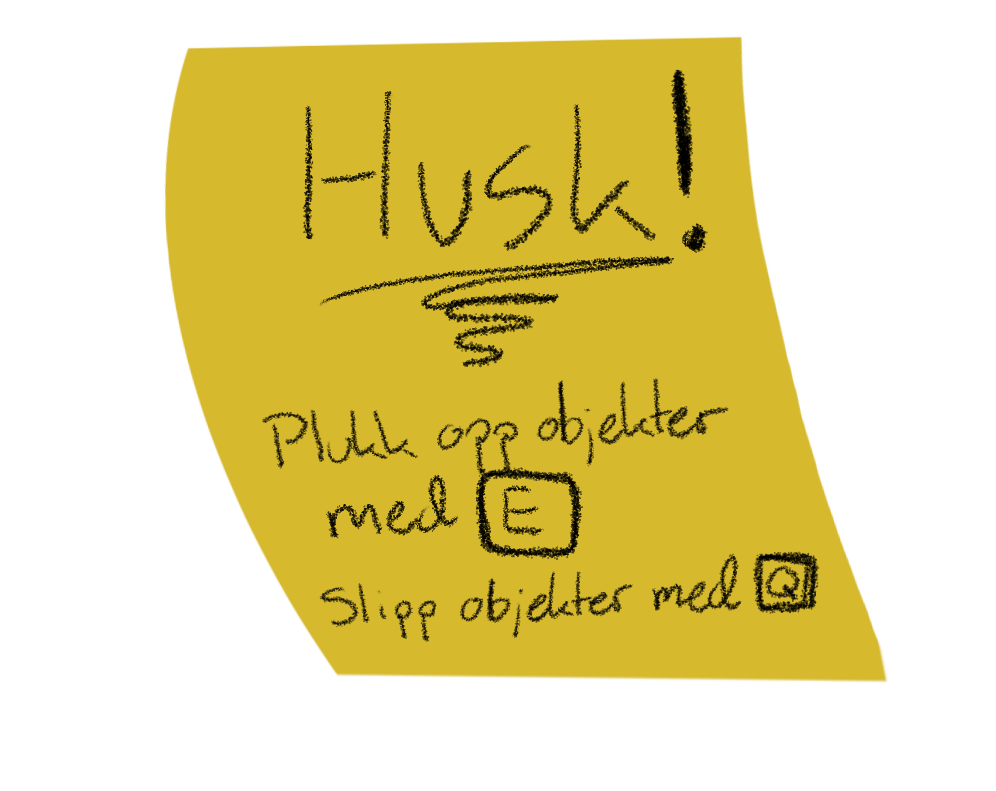 Husk!
Plukk opp objekter
med E
Slipp objekter med Q